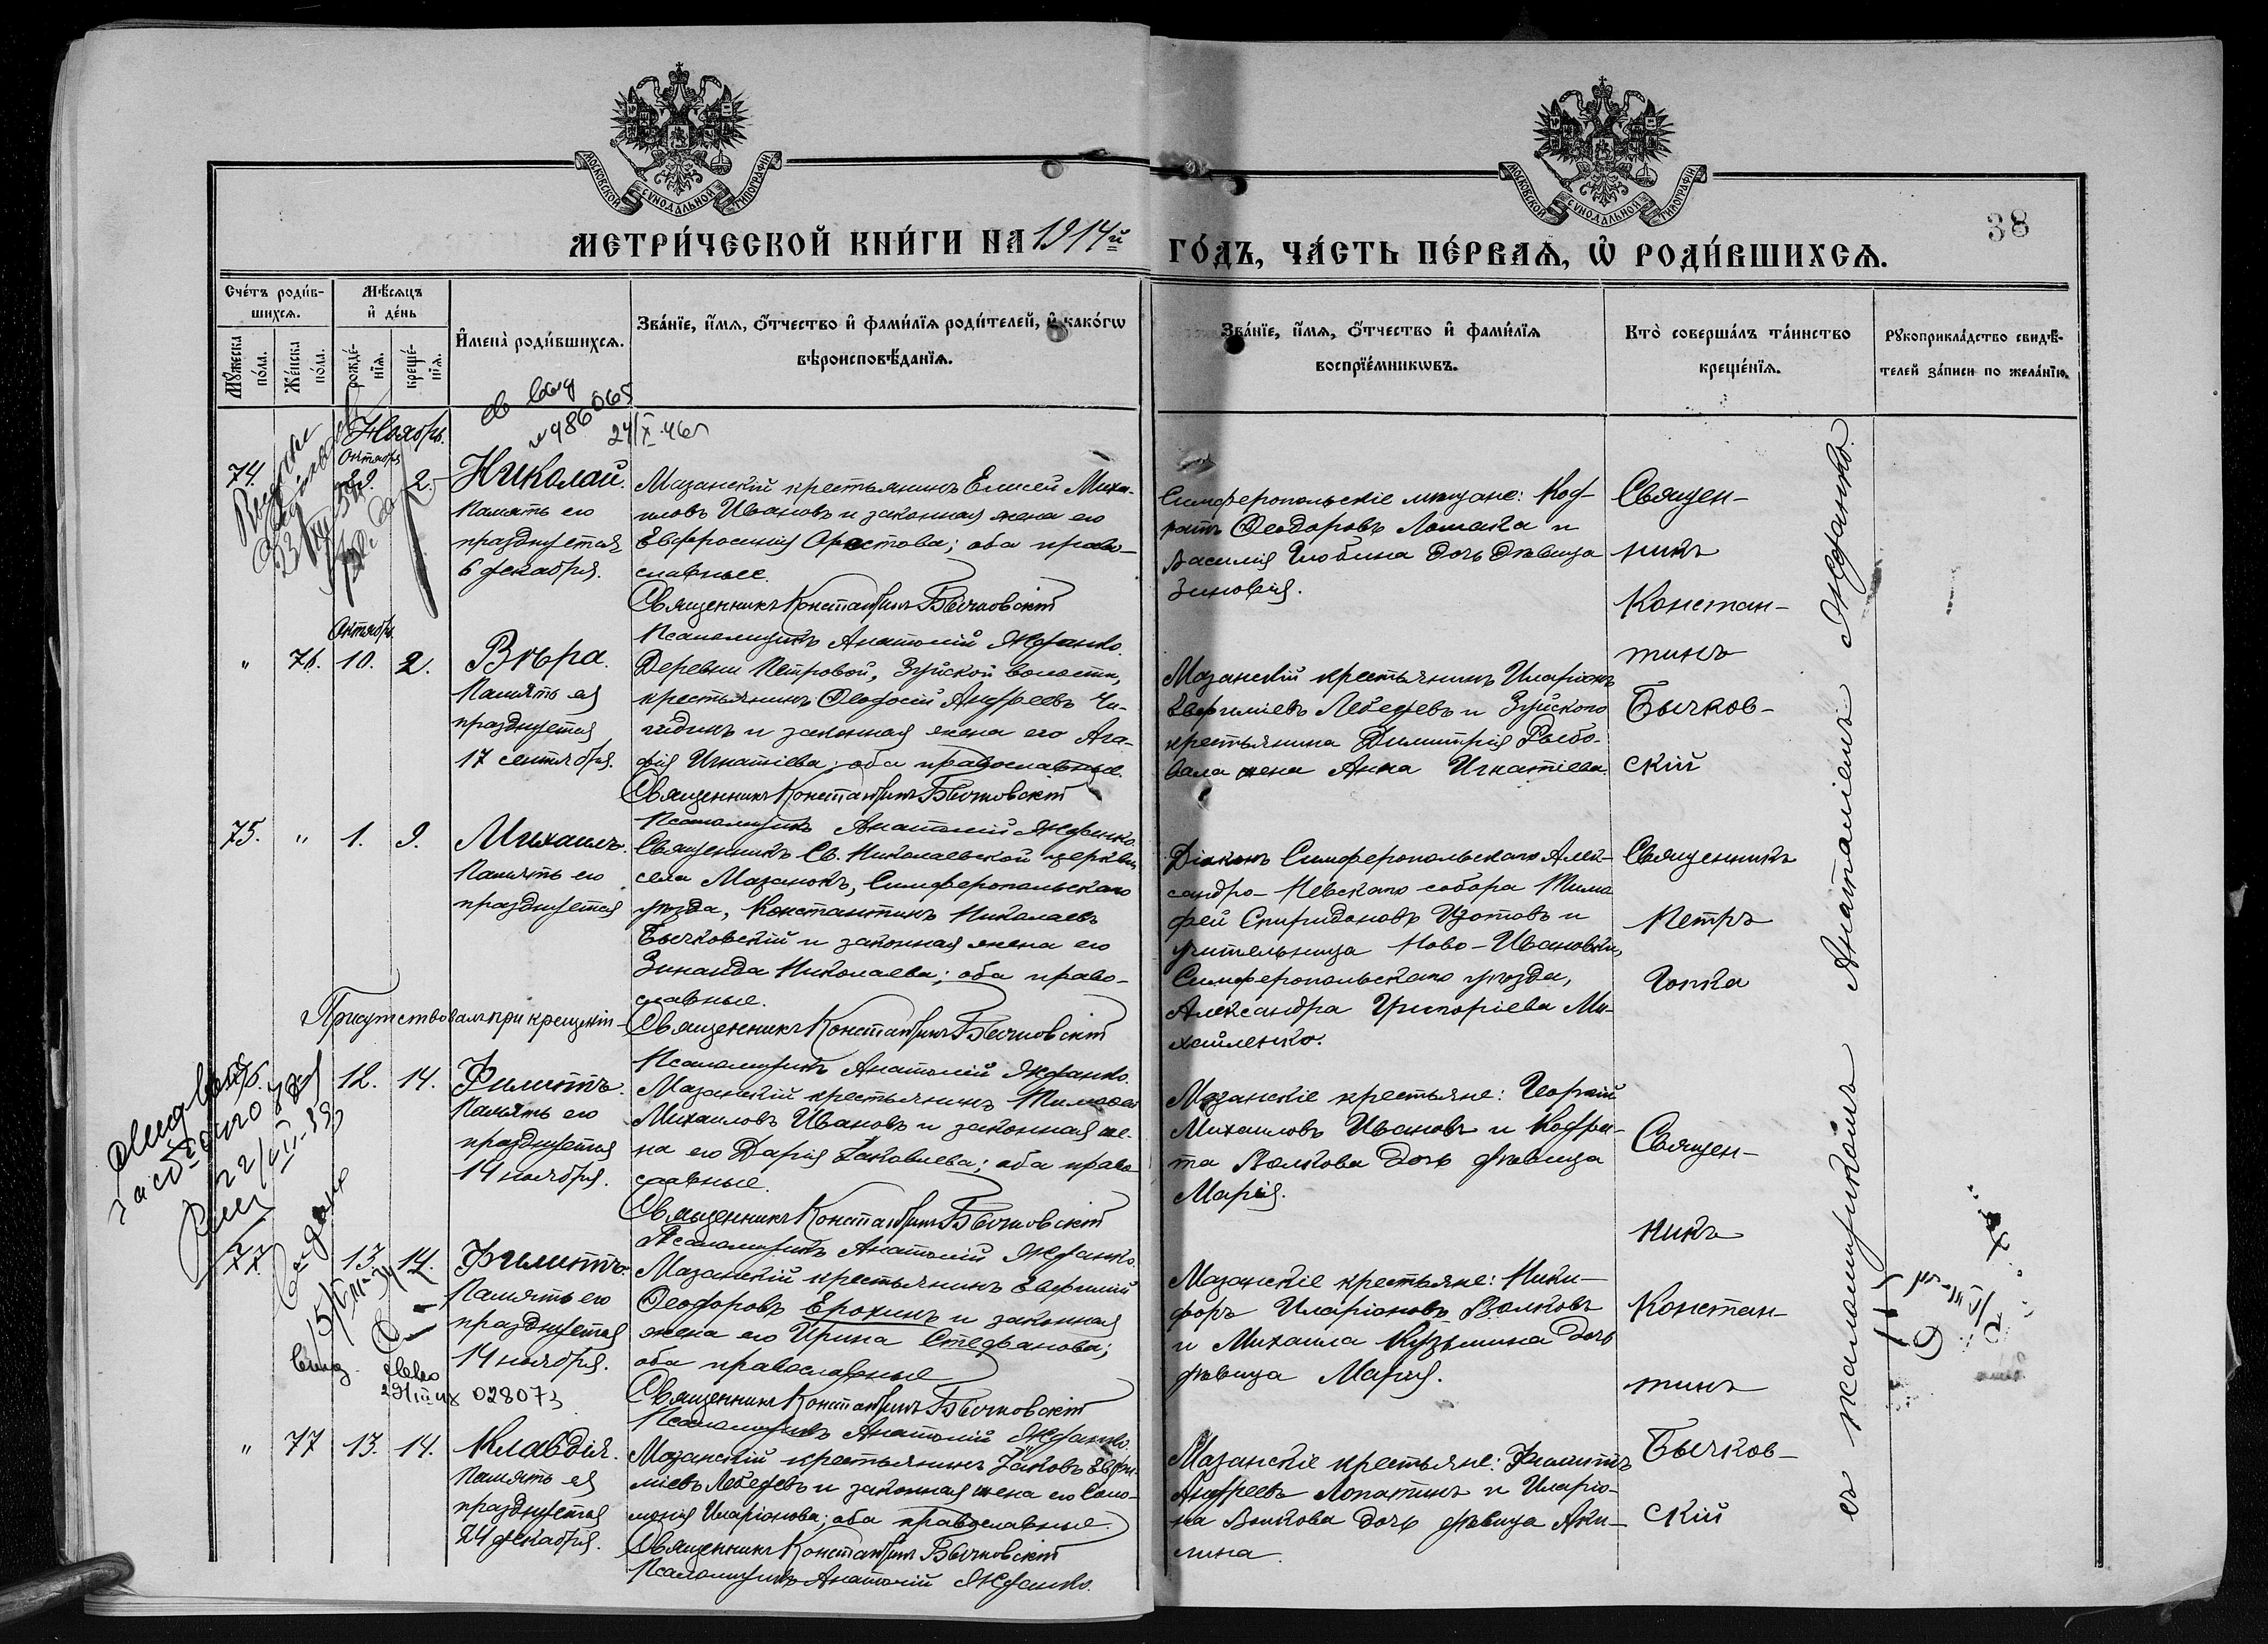 МОСКОВСКОЙ СѴНОДАЛЬНОЙ ТИПОГРАФІИ
МОСКОВСКОЙ СѴНОДАЛЬНОЙ ТИПОГРАФІИ
38
МЕТРИ́ЧЕСКОЙ КНИ́ГИ НА 1914й ГО́ДЪ, ЧА́СТЬ ПЕ́РВАѦ, Ѡ РОДИ́ВШИХСѦ.
Сче́тъ роди́в-
шихсѧ.
Мѹ́жеска по́ла.
Же́нска по́ла.
Мѣ́сѧцъ
и де́нь
рожде́-
нїѧ.
креще́-
нїѧ.
Имена̀ роди́вшихсѧ.
Зва́нїе, и́мѧ, ѻ́тчество и фами́лїѧ роди́телей, и како́гѡ
вѣроисповѣ́данїѧ.
Зва́нїе, и́мѧ, ѻ́тчество и фами́лїѧ
воспрїе́мникѡвъ.
Кто̀ соверша́лъ та́инство
креще́нїѧ.
Рѹкоприкла́дство свидѣ́-
телей за́писи по жела́нїю.
№486065
24/X 46г
Ноябрь.
Октября
74. 29. 2. Николай.
Память его
празднуется
6 декабря.
Мазанскій крестьянинъ Елисей Миха-
иловъ Ивановъ и законная жена его
Евфросинія Орестова; оба право-
славные.
Священникъ Константинъ Бычковскій
Псаломщикъ Анатолій Жданко.
Симферопольскіе мещане: Код-
ратъ Ѳеодоровъ Ломака и
Василія Глобина дочь дѣвица
Зиновія.
Священ-
никъ
Констан-
тинъ
Бычков-
скій
Октября
" 76. 10. 2. Вѣра.
Память ея
празднуется
17 сентября.
Деревни Петровой, Зуйской волости,
крестьянинъ Ѳеодосій Андреевъ Чи-
гидинъ и законная жена его Ага-
фія Игнатіева; оба православные.
Священникъ Константинъ Бычковскій
Псаломщикъ Анатолій Жданко.
Мазанскій крестьянинъ Иларіонъ
Евфиміевъ Лебедевъ и Зуйского
крестьянина Димитрія Рыбо-
вала жена Анна Игнатіева.
75. " 1. 9. Михаилъ.
Память его
празднуется
Священникъ Св. Николаевской церкви
села Мазанокъ, Симферопольскаго
уѣзда, Константинъ Николаевъ
Бычковскій и законная жена его
Зинаида Николаева; оба право-
славные.
Присутствовалъ при крещеніи-
Священникъ Константинъ Бычковскій
Псаломщикъ Анатолій Жданко.
Діаконъ Симферопольскаго Алек-
сандро-Невскаго собора Тимо
фей Спиридоновъ Изотовъ и
учительница Ново-Ивановки,
Симферопольскаго уѣзда,
Александра Григоріева Ми-
хайленко.
Священникъ
Петръ
Гопка
12. 14. Филиппъ.
Память его
празднуется
14 ноября.
Мазанскій крестьянинъ Тимофей
Михаиловъ Ивановъ и законная же-
на его Дарія Іаковлева; оба право
славные.
Священникъ Константинъ Бычковскій
Псаломщикъ Анатолій Жданко.
Мазанскіе крестьяне: Георгій
Михаиловъ Ивановъ и Кодра-
та Волкова дочь дѣвица
Марія.
Священ-
никъ
Констан-
тинъ
Бычков-
скій
77. 13. 14. Филиппъ.
Память его
празднуется
14 ноября.
028073
Мазанскій крестьянинъ Евфимій
Ѳеодоровъ Ерохинъ и законная
жена его Ирина Стефанова;
оба православные
Священникъ Константинъ Бычковскій
Псаломщикъ Анатолій Жданко.
Мазанскіе крестьяне: Ники-
форъ Иларіоновъ Волковъ
и Михаила Кузьмина дочь
дѣвица Марія.
" 77 13. 14. Клавдія.
Память ея
празднуется
24 декабря.
Мазанскій крестьянинъ Іаковъ Евфи-
міевъ Лебедевъ и законная жена его Соло-
монія Иларіонова; оба православные.
Священникъ Константинъ Бычковскій
Псаломщикъ Анатолій Жданко.
Мазанскіе крестьяне: Филиппъ
Андреевъ Лопатинъ и Иларіо-
на Волкова дочь дѣвица Аки-
лина.
съ псаломщикомъ Анатоліемъ Жданко.